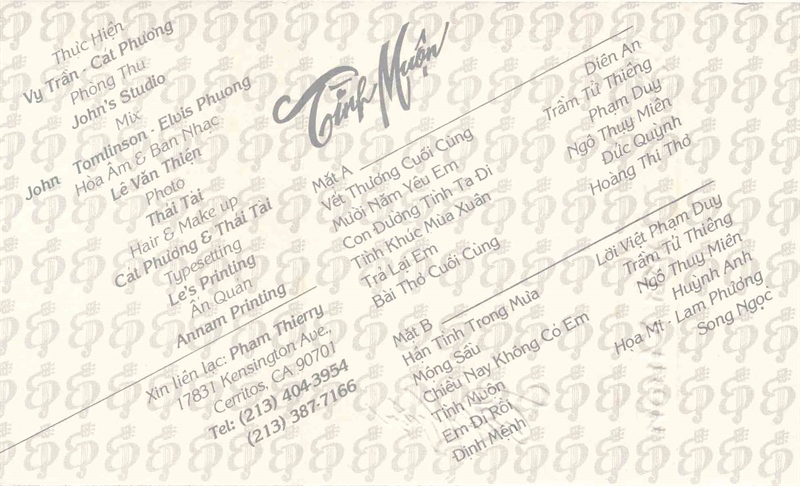 Thực Hiện
Vy Trần - Cát Phương
Phòng Thu
John's Studio
Mix
John Tomlinson - Elvis Phuong
Hòa Âm & Ban Nhạc
Lê Văn Thiện
Photo
Thái Tài
Hair & Make up
Cát Phương & Thái Tài
Typesetting
Le's Printing
Ấn Quán
Annam Printing
Xin liên lạc: Phạm Thierry
17831 Kensington Ave.,
Cerritos, CA 90701
Tel: (213) 404-3954
(213) 387-7166
Tình Muộn
Mặt A
Vết Thương Cuối Cùng Diên An
Mười Năm Yêu Em Trầm Tử Thiêng
Con Đường Tình Ta Đi Phạm Duy
Tình Khúc Mùa Xuân Ngô Thụy Miên
Trả Lại Em Đức Quỳnh
Bài Thơ Cuối Cùng Hoàng Thi Thơ
Mặt B
Hận Tình Trong Mưa Lời Việt Phạm Duy
Mộng Sầu Trầm Tử Thiêng
Chiều Nay Không Có Em Ngô Thụy Miên
Tình Muộn Huỳnh Anh
Em Đi Rồi Họa Mi - Lam Phương
Định Mệnh Song Ngọc